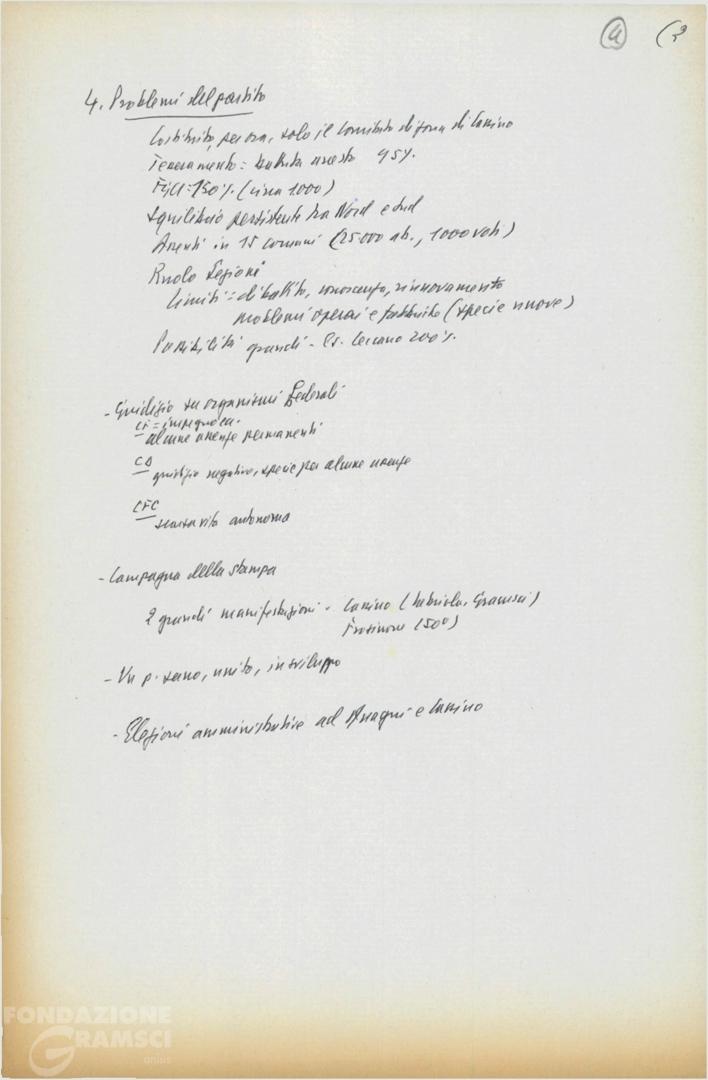 4 (3
4. Problemi del partito
Costituito, per ora, solo il Comitato di zona di Cassino
Tesseramento = battuta arresto 95%.
FGCI = 150%. (circa 1000)
Squilibrio persistente tra Nord e sud
Assenti in 15 comuni (25.000 ab., 1000 voti)
Ruolo Sezioni
Limiti = dibattito, conoscenza, rinnovamento
problemi operai e fabbriche (specie nuove)
Possibilità grandi - Es. Ceccano 200%.
- Giudizio su organismi Federali
CF = impegno ca.
alcune assenze permanenti
CD
giudizio negativo, specie per alcune assenze
CFC
scarsa vita autonoma
- Campagna della stampa
2 grandi manifestazioni - Cassino (Labriola, Gramsci)
Frosinone (50°)
- Un p. sano, unito, in sviluppo
- Elezioni amministrative ad Anagni e Cassino
FONDAZIONE
GRAMSCI
onlus